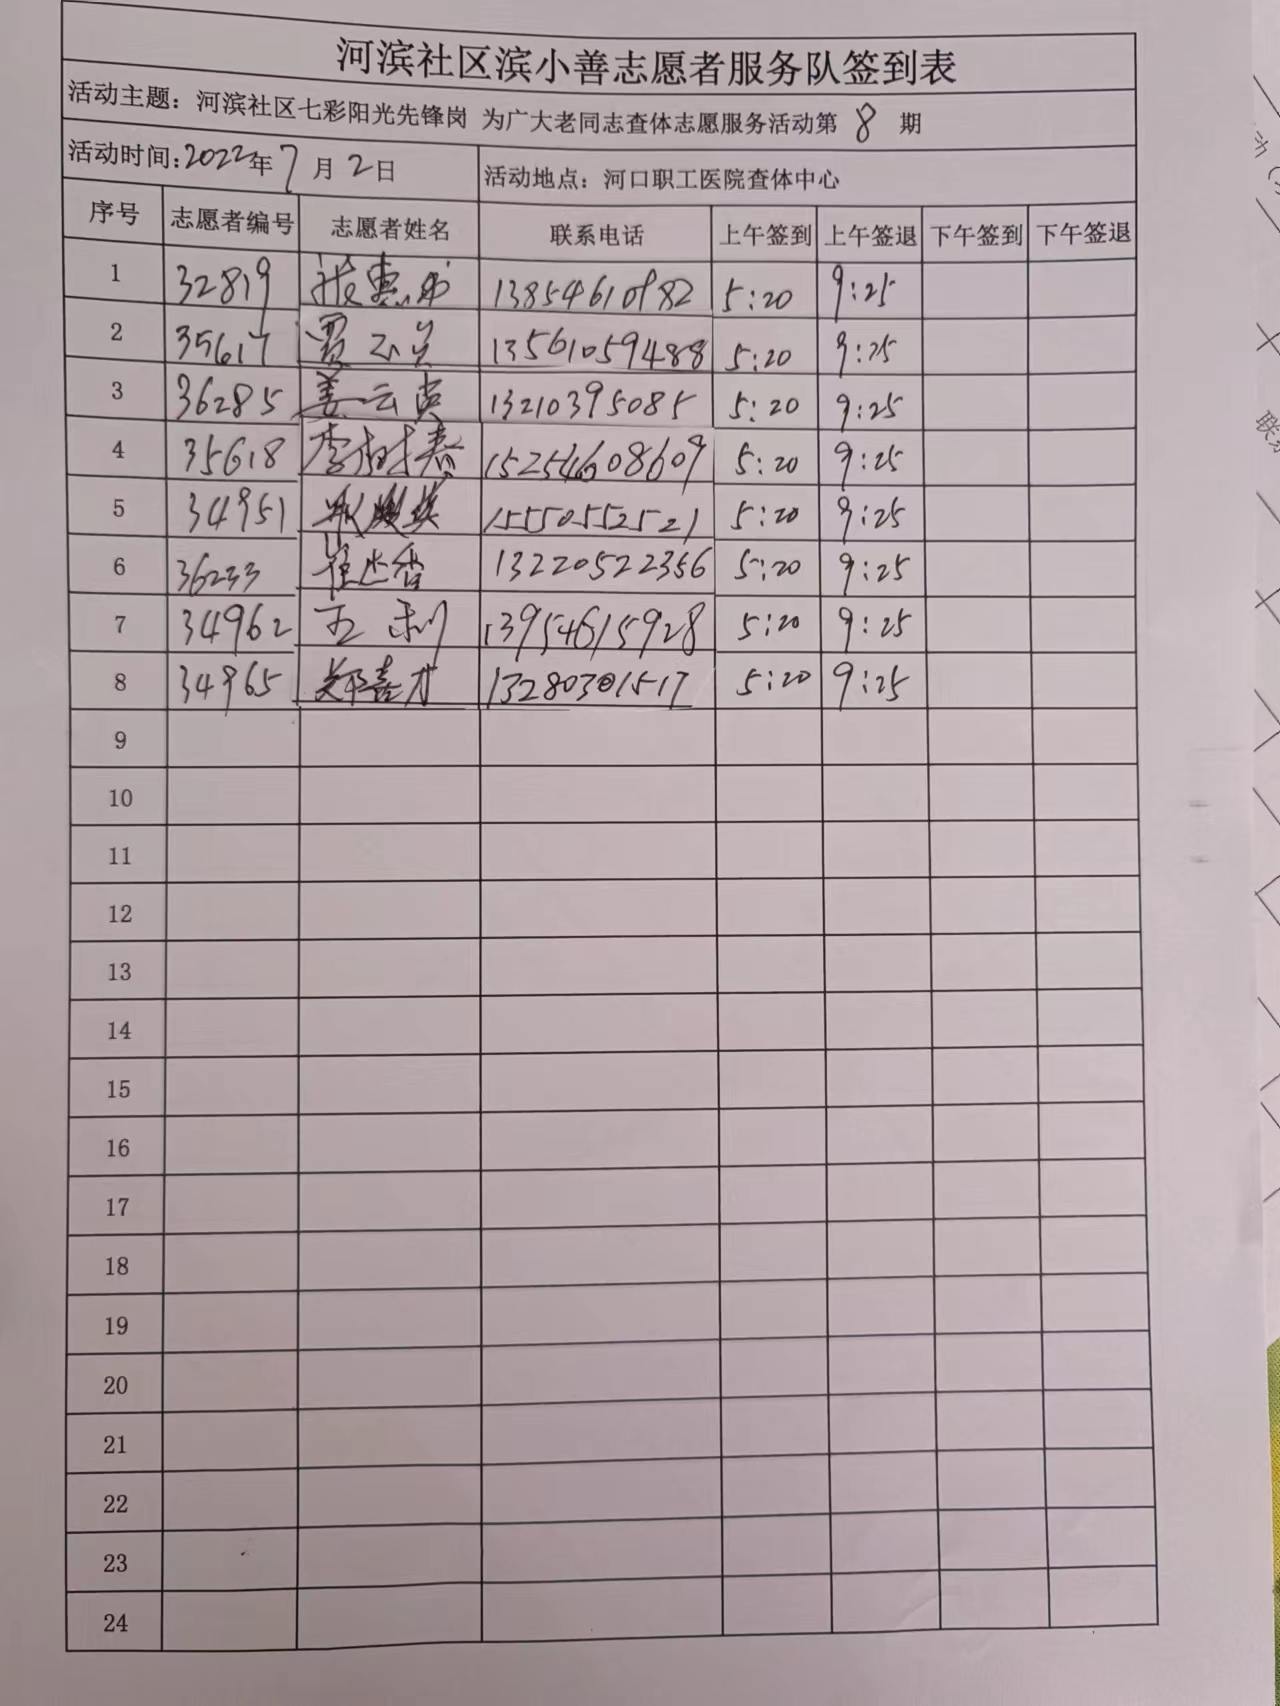 河滨社区滨小善志愿者服务队签到表
活动主题：河滨社区七彩阳光先锋岗 为广大老同志查体志愿服务活动第 8 期
活动时间:2022年7月2日 活动地点：河口职工医院查体中心
序号 志愿者编号 志愿者姓名 联系电话 上午签到 上午签退 下午签到 下午签退
1 32819 13854610982 5:20 9:25
2 35617 贾 13561059488 5:20 9:25
3 36285 姜云英 13210395085 5:20 9:25
4 35618 李树春 15254608609 5:20 9:25
5 34951 15550552521 5:20 9:25
6 36233 崔兰香 13220522356 5:20 9:25
7 34962 王利 13954615928 5:20 9:25
8 34965 郑喜才 13280301517 5:20 9:25
9
10
11
12
13
14
15
16
17
18
19
20
21
22
23
24